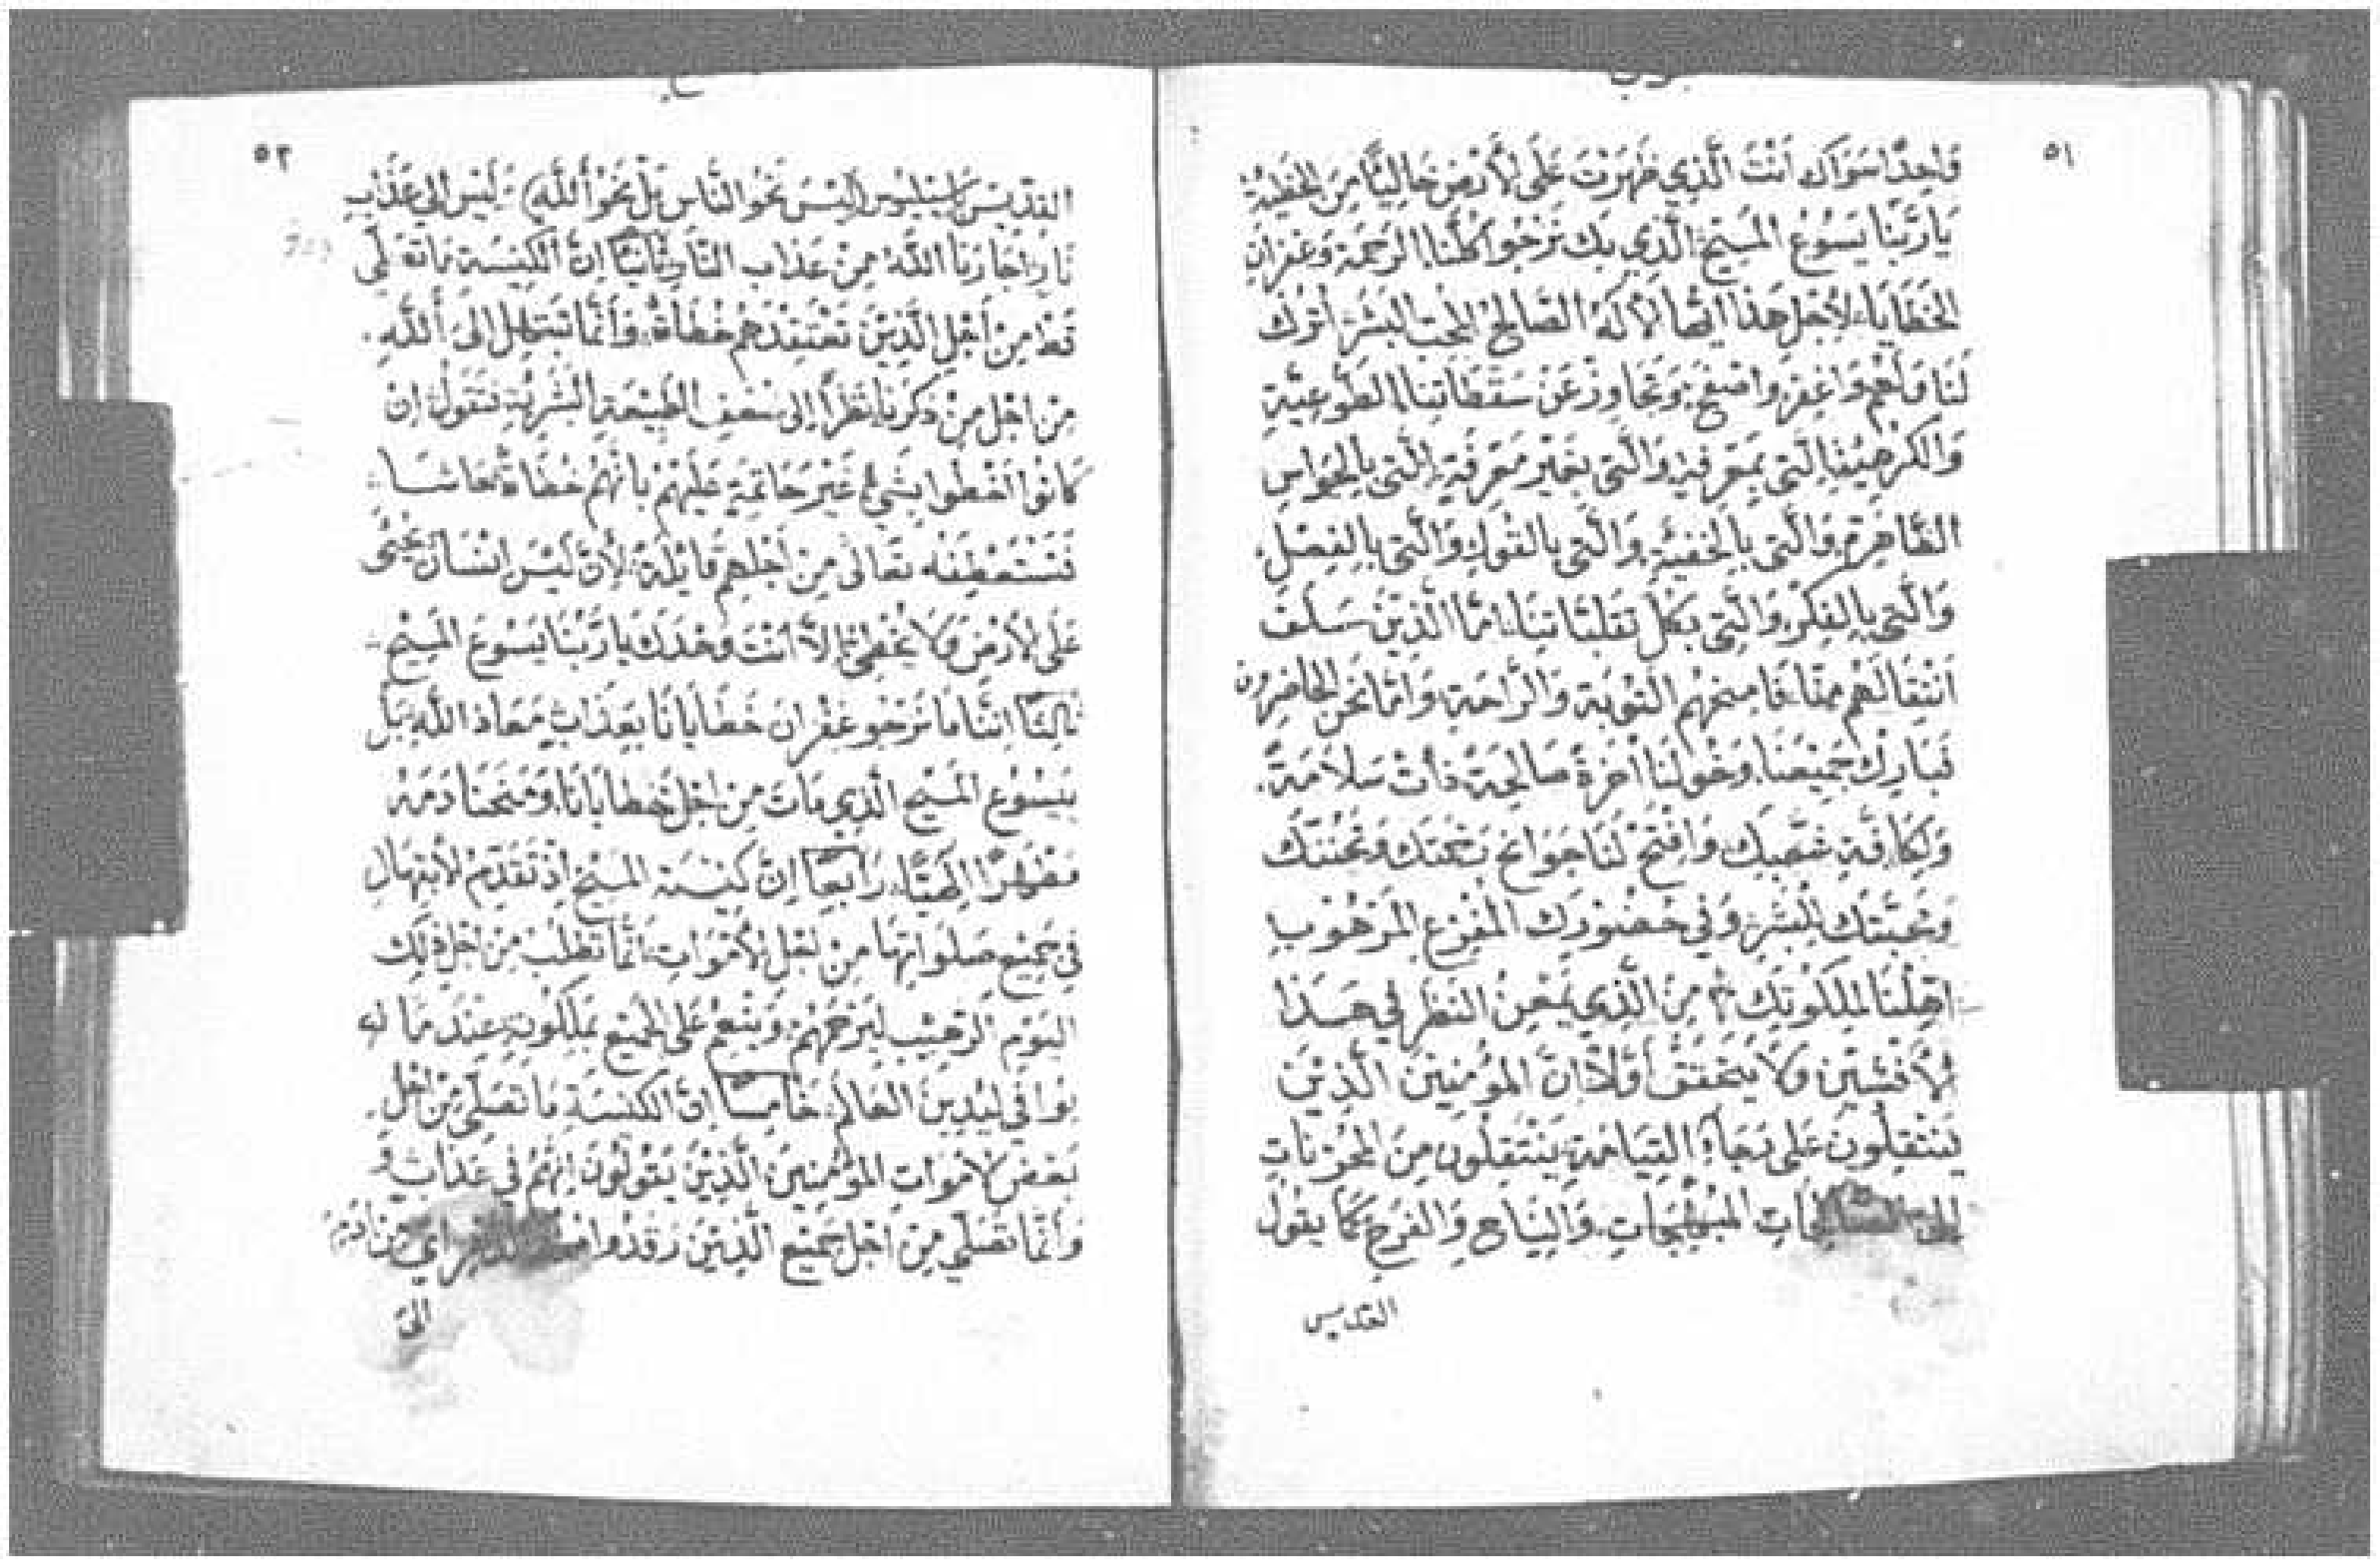 ٥١
وَاحِدًا سَوَاكَ اَنْتَ الَّذِي ظَهَرْتَ عَلَى الأَرْضِ خَالِيًّا مِنَ الخَطِيَّةِ
يَا رَبَّنَا يَسُوْعَ المَسِيْحَ الَّذِي بِكَ نَرْجُوا كُلُّنَا الرَحْمَة وَغفْرَانِ
الخَطَايَا، لأَجْلِ هَذَا ايْضًا الأَلَهُ الصَّالِحُ المُحِبُ البَشَرْ اُتْرُكْ
لَنَا وَلَهُمْ وَاغْفِرْ وَاصْفَحْ، وَتَجَاوَزْ عَنْ سَقَطَاتِنا الطَوْعِيَّةِ
وَالكَرْهِيَّة الَّتي بِمَعَرِفَةٍ وَالَّتي بِغَيْرِ مَعَرِفَةٍ الَّتي بِالحَوَاسِ
الظَّاهِرَةِ وَالَّتي بالخَفِيَّةِ وَالَّتي بالقَوْلِ وَالَّتي بِالفِعْلِ
وَالَّتِي بالفِكْرِ وَالَّتِي بِكُلِّ تَقَلُّبَاتِنَا، امَّا الَّذِيْنَ سَلَفَ
اَنْتِقَالَهُم مِنَّا فَامنحْهُمِ التَوْبَة وَالرَّاحَةِ وَامَّا نَحْنُ الحَاضِرُون
فَبَارِكْ جَمِيْعَنَا، وَخَوِّلْنَا اَخِرَةً صَالِحَةً ذَاتَ سَلاَمَةٍ.
وَلِكَافَّةِ شَعْبِكَ وَافْتَحْ لَنَا جَوَانِحَ وَتَحَنُنَكَ
وَمَحَبَّتِكَ لِلْبَشَرِ وَفِي حُضُوْرِكَ المُفْزِعِ المَرْهُوْبِ
اَهِّلْنَا لمَلَكُوْتِكَ مِنَ الَّذِي يُمْعِنُ النَظَرَ فِي هَذَا
الأَفْشِيْنِ وَلاَ يَتَحَقَّقُ أَوَّلاً اِنَّ المُؤْمِنِيْنَ الَّذِيْنَ
يَنْتَقِلُونَ عَلَى رَجَاءِ القِيَامَةِ يَنْتَقِلُونَ مِنَ المُحْزِنَاتِ
إِلَى الصَّالِحَاتِ المُبْهِجَاتِ، وَالنِيَاحِ وَالفَرَحِ كَمَا يقُوْلُ
القديس
٥٢
القِدِّيْسَ بَاسِيْلِيُوس لَيْسَ نَحْوَ النَّاسِ بَلْ نَحْوَ أَللَّهِ، لَيْسَ اِلَى عَذَابِ
نَارٍ اَجَارَنَا اللَّهُ مِنْ عَذَابِ النَّارِ ثَانِيًّا اِنَّ الكَنِيْسَةِ مَا تُصَلِّي
قَطْ مِنْ أَجْلِ الَّذِيْنَ تَعْتَقِدَهُمْ خُطَاةْ، وَأَنَّمَا تَبْتَهِلُ اِلَى أَللَّهِ.
مِنْ اَجْلِ مِنْ ذَكَرْنَا نَظَرًا اِلَى ضَعفِ الطَبِيْعَةِ البَشَرِيَّةِ فَتَقُولُ اِنْ
كَانُوْا اَخْطَوا بِشَيْءٍ غَيْرَ حَاتِمَةٍ عَلَيْهِمْ بِأَنَّهُمْ خُطَاةْ حَاشَا
فَتَسْتَعْطِفْه تَعَالَى مِنْ أَجْلِهِمِ قَايْلَةً، لأَنْ لَيْسَ اِنْسَان يَحْيَى
عَلَى الأَرْضِ وَلاَ يُخْطِئْ الاَّ اَنْتَ وَحْدَكَ يَا رَبَّنَا يَسْوعَ المَسِيْحِ
ثَالِثًا اِنَّنَا مَا نَرْجُو غفْرَان خَطَايَانَا بِعَذَابٍ مَعَاذ اللَّهِ بَلْ
بِيَسُوْعِ المَسِيْحِ الَّذِي مَاتَ مِنْ اَجْلِ خَطايَانَا، وَمَنَحَنَا دَمَهُ
مَطْهَرًا اِلَهِيًّا، رَابِعًا اِنَّ كَنِيْسَة المَسِيْحِ اِذْ تُقَدِّمْ لأبْتِهَال
فِي جَمِيْعِ صَلَوَاتِهَا مِنْ اَجْلِ الأَمْوَاتِ، اَنَّمَا تَطْلُبْ مِنْ اَجْلِ ذَلِكَ
اليَوْم الرَهِيْب لِيَرْحَمْهُمْ، وَيُنْعِمْ عَلَى الجَمِيْعِ بِمَلَكُوتِهِ عِنْدَ مَا
فِي لِيَدِيْنَ العَالَمْ، خَامِسًا اِنَّ الكَنِيْسَةِ مَا تُصَلِّي مِنْ اَجْلِ
بَعْضِ الأَمْوَاتِ المُؤْمِنِيْنَ الَّذِيْنَ يَقُوْلُوْنَ اِنَّهُمْ فِي عَذَابٍ
وَأَنَّمَا تُصَلِّي مِنْ اَجْلِ جَمِيْعِ الَّذِيْنَ رَقَدُوا اي مِنْ
الى